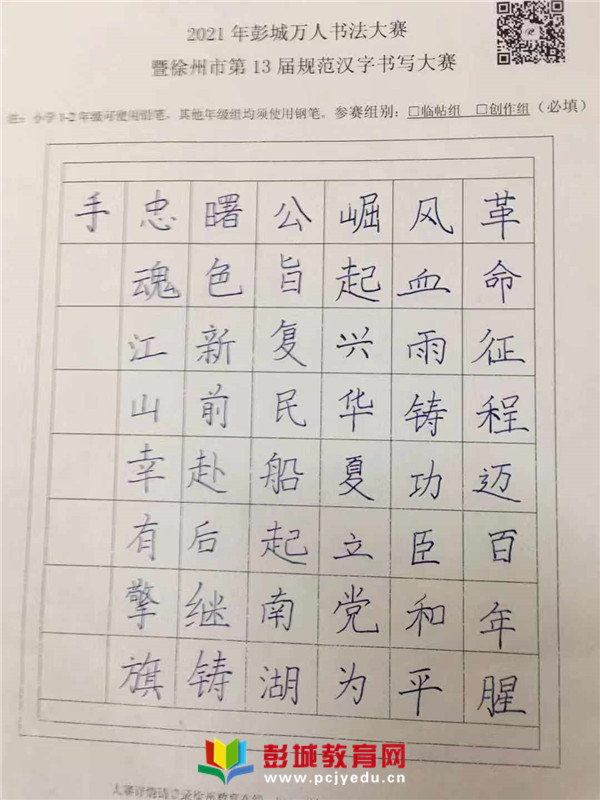 2021 年彭城万人书法大赛
暨徐州市第 13 届规范汉字书写大赛
注：小学 1-2 年级可使用铅笔，其他年级组均须使用钢笔。参赛组别：□临帖组 □创作组（必填）
革命征程迈百年腥
风血雨铸功臣和平
崛起兴华夏立党为
公旨复民船起南湖
曙色新前赴后继铸
忠魂江山幸有擎旗
手
彭城教育网
www.pcjyedu.cn
大赛详情请登录徐州教育在线